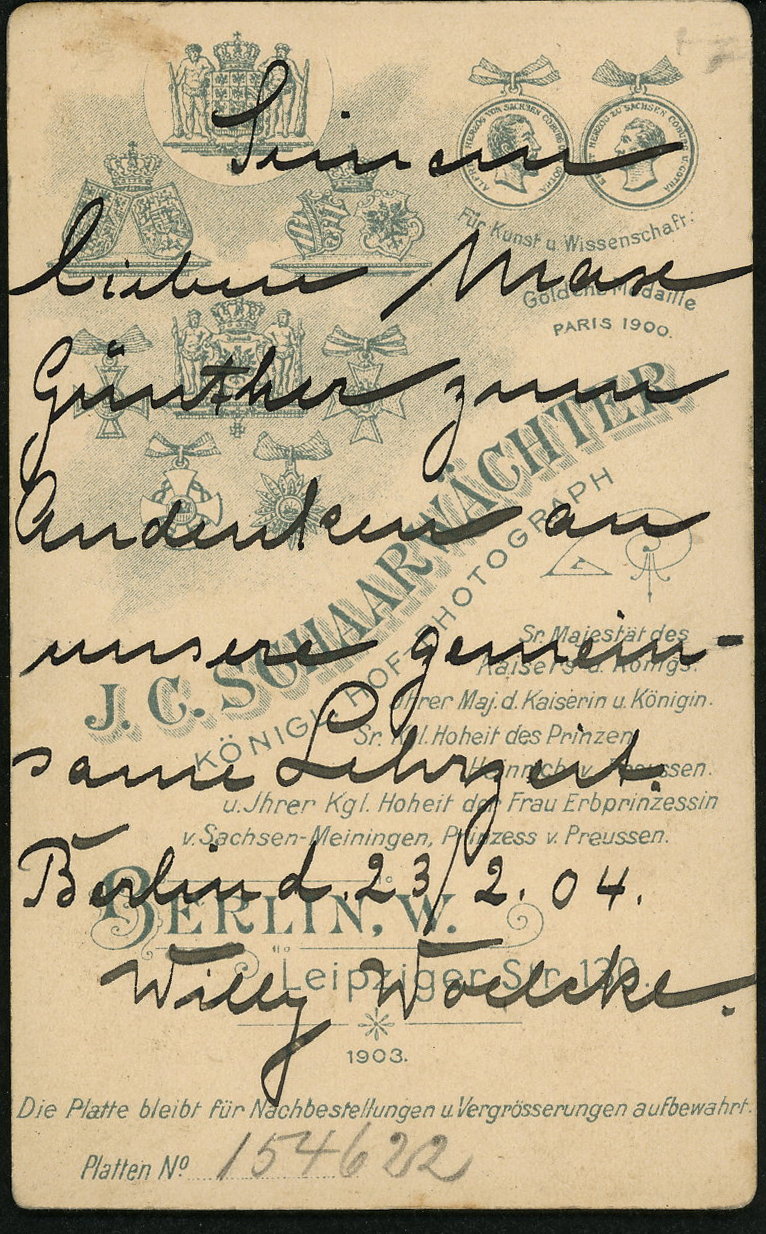 Seinem
lieben Max
Günther zum
Andenken an
unsere gemein-
same Lehrzeit.
Berlin d. 23/2. 04.
Willy Woelcke.
Für Kunst u. Wissenschaft:
Goldene Medaille
PARIS 1900.
J. C. SCHAARWÄCHTER
KÖNIGL. HOF-PHOTOGRAPH
Sr. Majestät des
Kaisers u. Königs.
Jhrer Maj. d. Kaiserin u. Königin.
Sr. Kgl. Hoheit des Prinzen
Heinrich v. Preussen.
u. Jhrer Kgl. Hoheit der Frau Erbprinzessin
v. Sachsen-Meiningen, Prinzess v. Preussen.
BERLIN, W.
Leipziger Str. 130.
1903.
Die Platte bleibt für Nachbestellungen u. Vergrösserungen aufbewahrt.
Platten No 154622